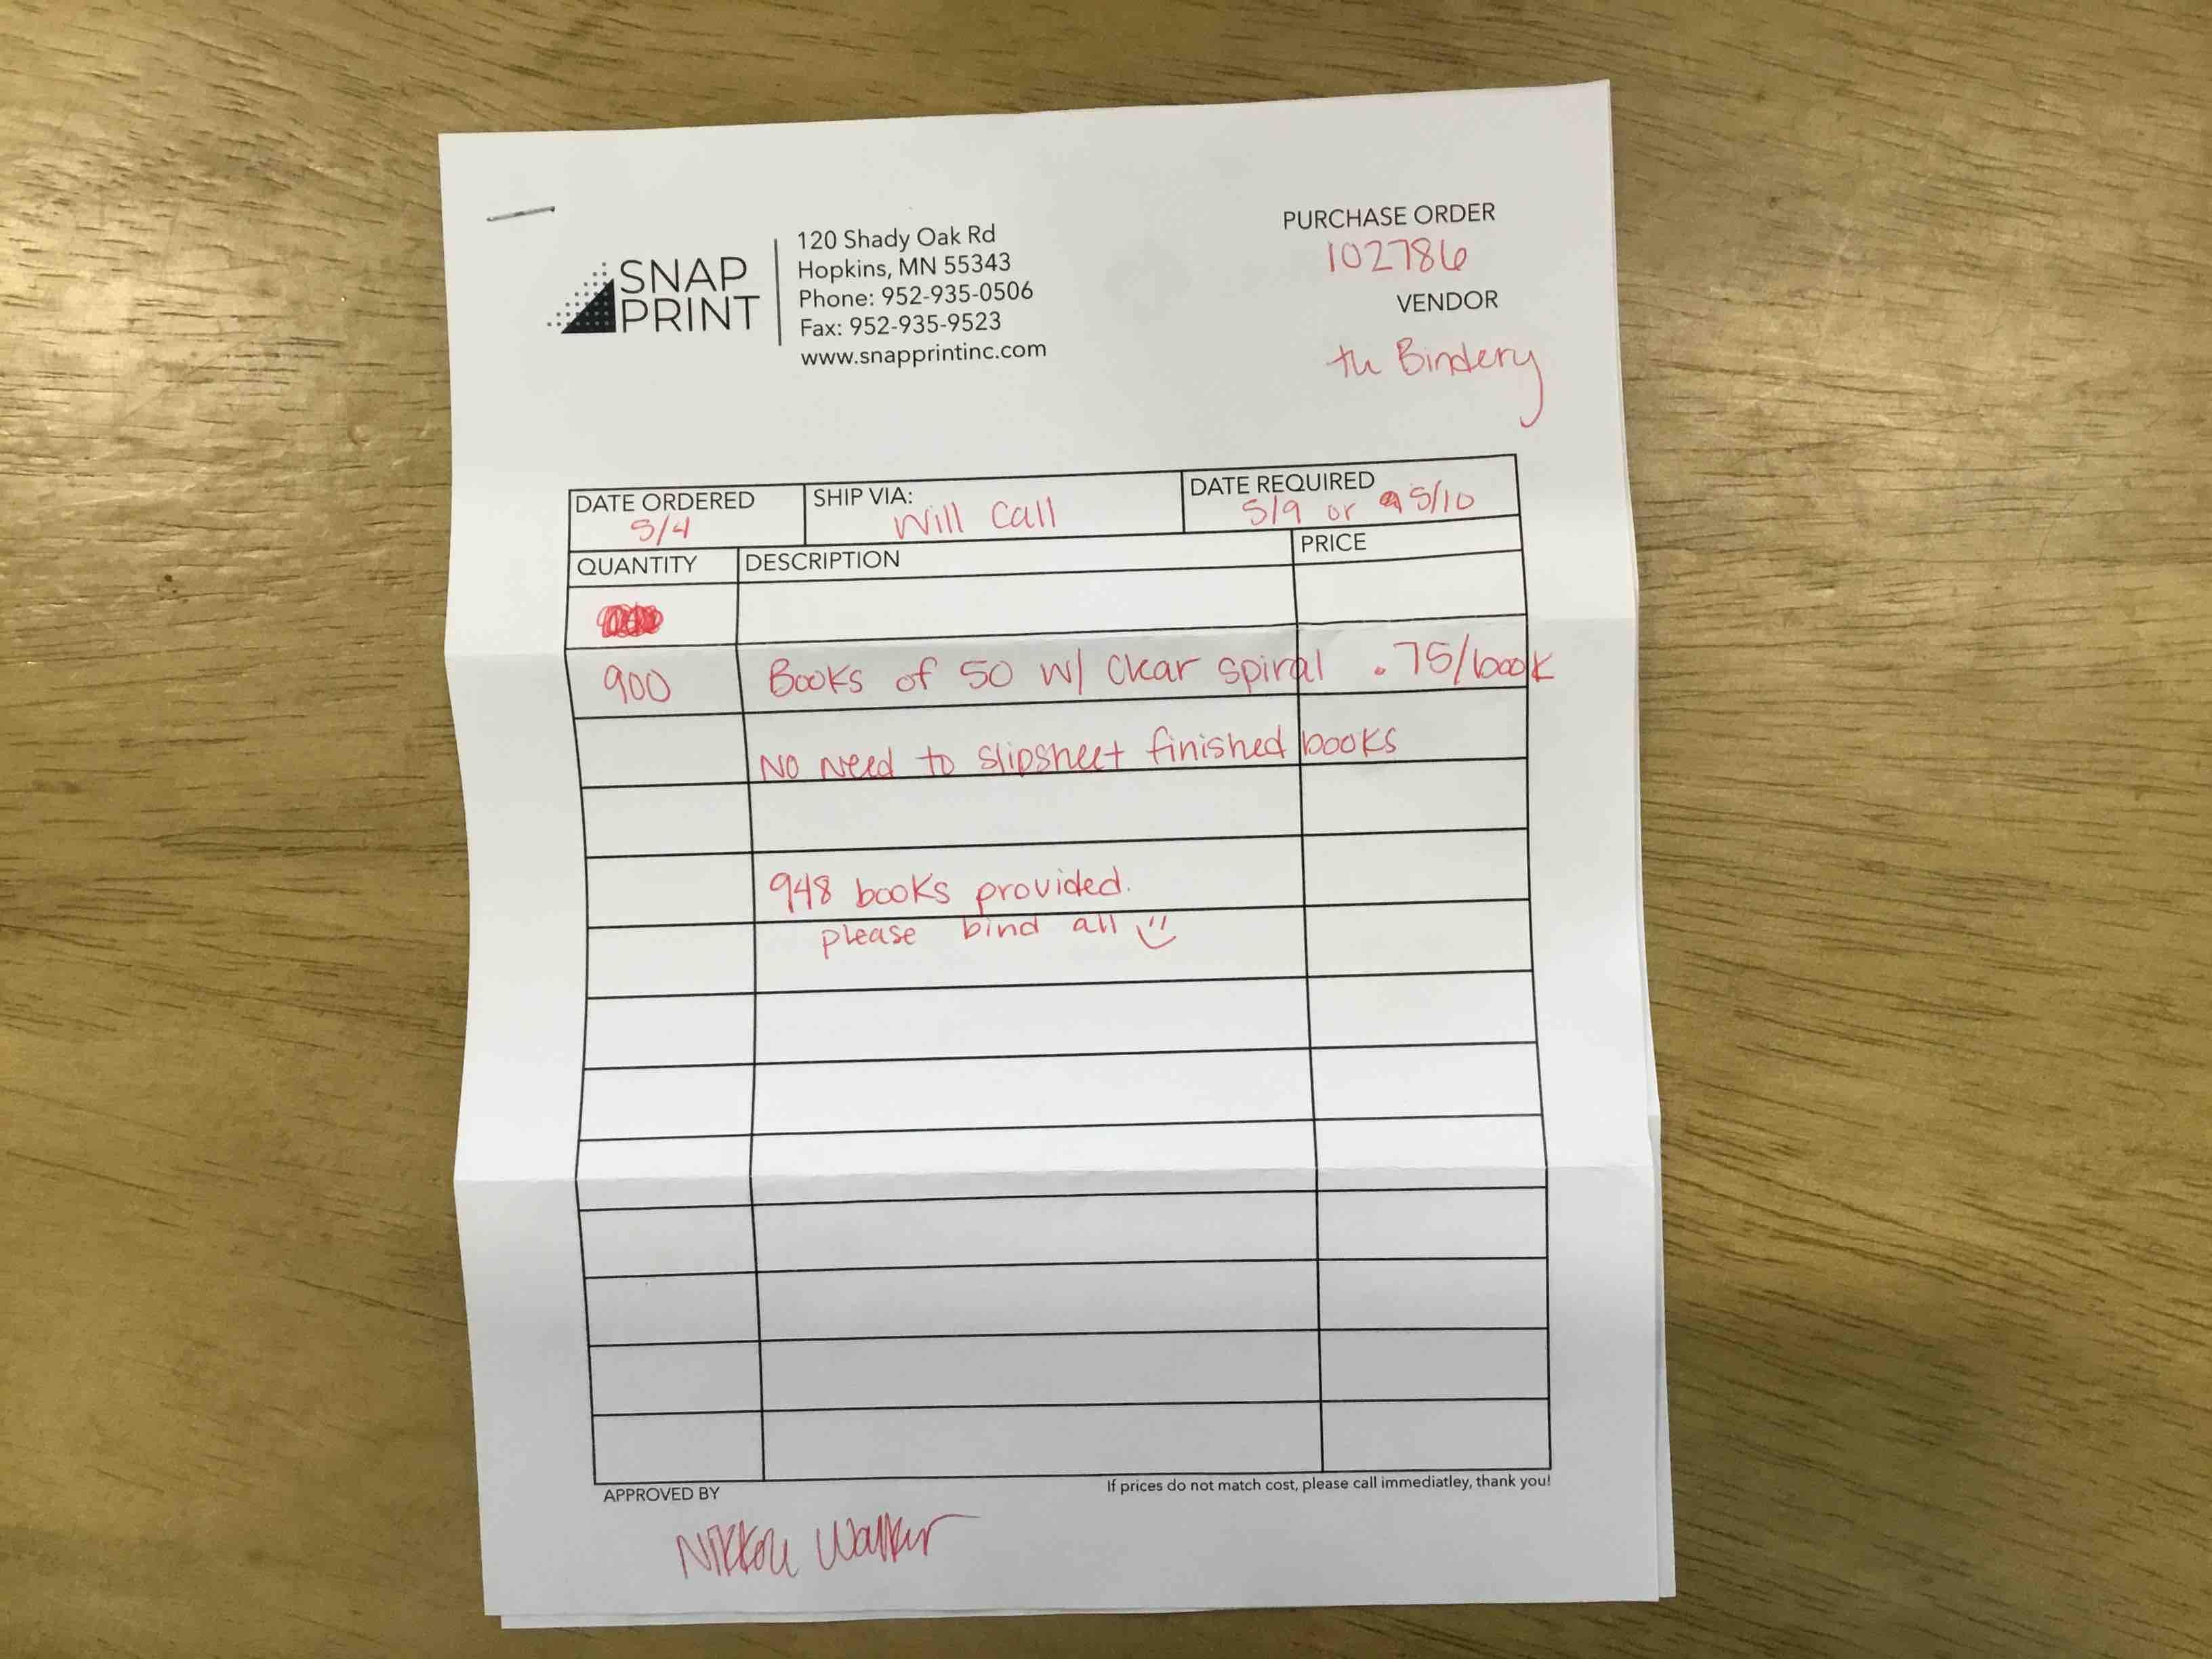 SNAP
PRINT
120 Shady Oak Rd
Hopkins, MN 55343
Phone: 952-935-0506
Fax: 952-935-9523
www.snapprintinc.com
PURCHASE ORDER
102786
VENDOR
the Bindery
DATE ORDERED
5/4
SHIP VIA:
Will Call
DATE REQUIRED
5/9 or 5/10
QUANTITY DESCRIPTION PRICE
900 Books of 50 w/ clear spiral .75/book
No need to slipsheet finished books
948 books provided.
please bind all
APPROVED BY
If prices do not match cost, please call immediatley, thank you!
Walker